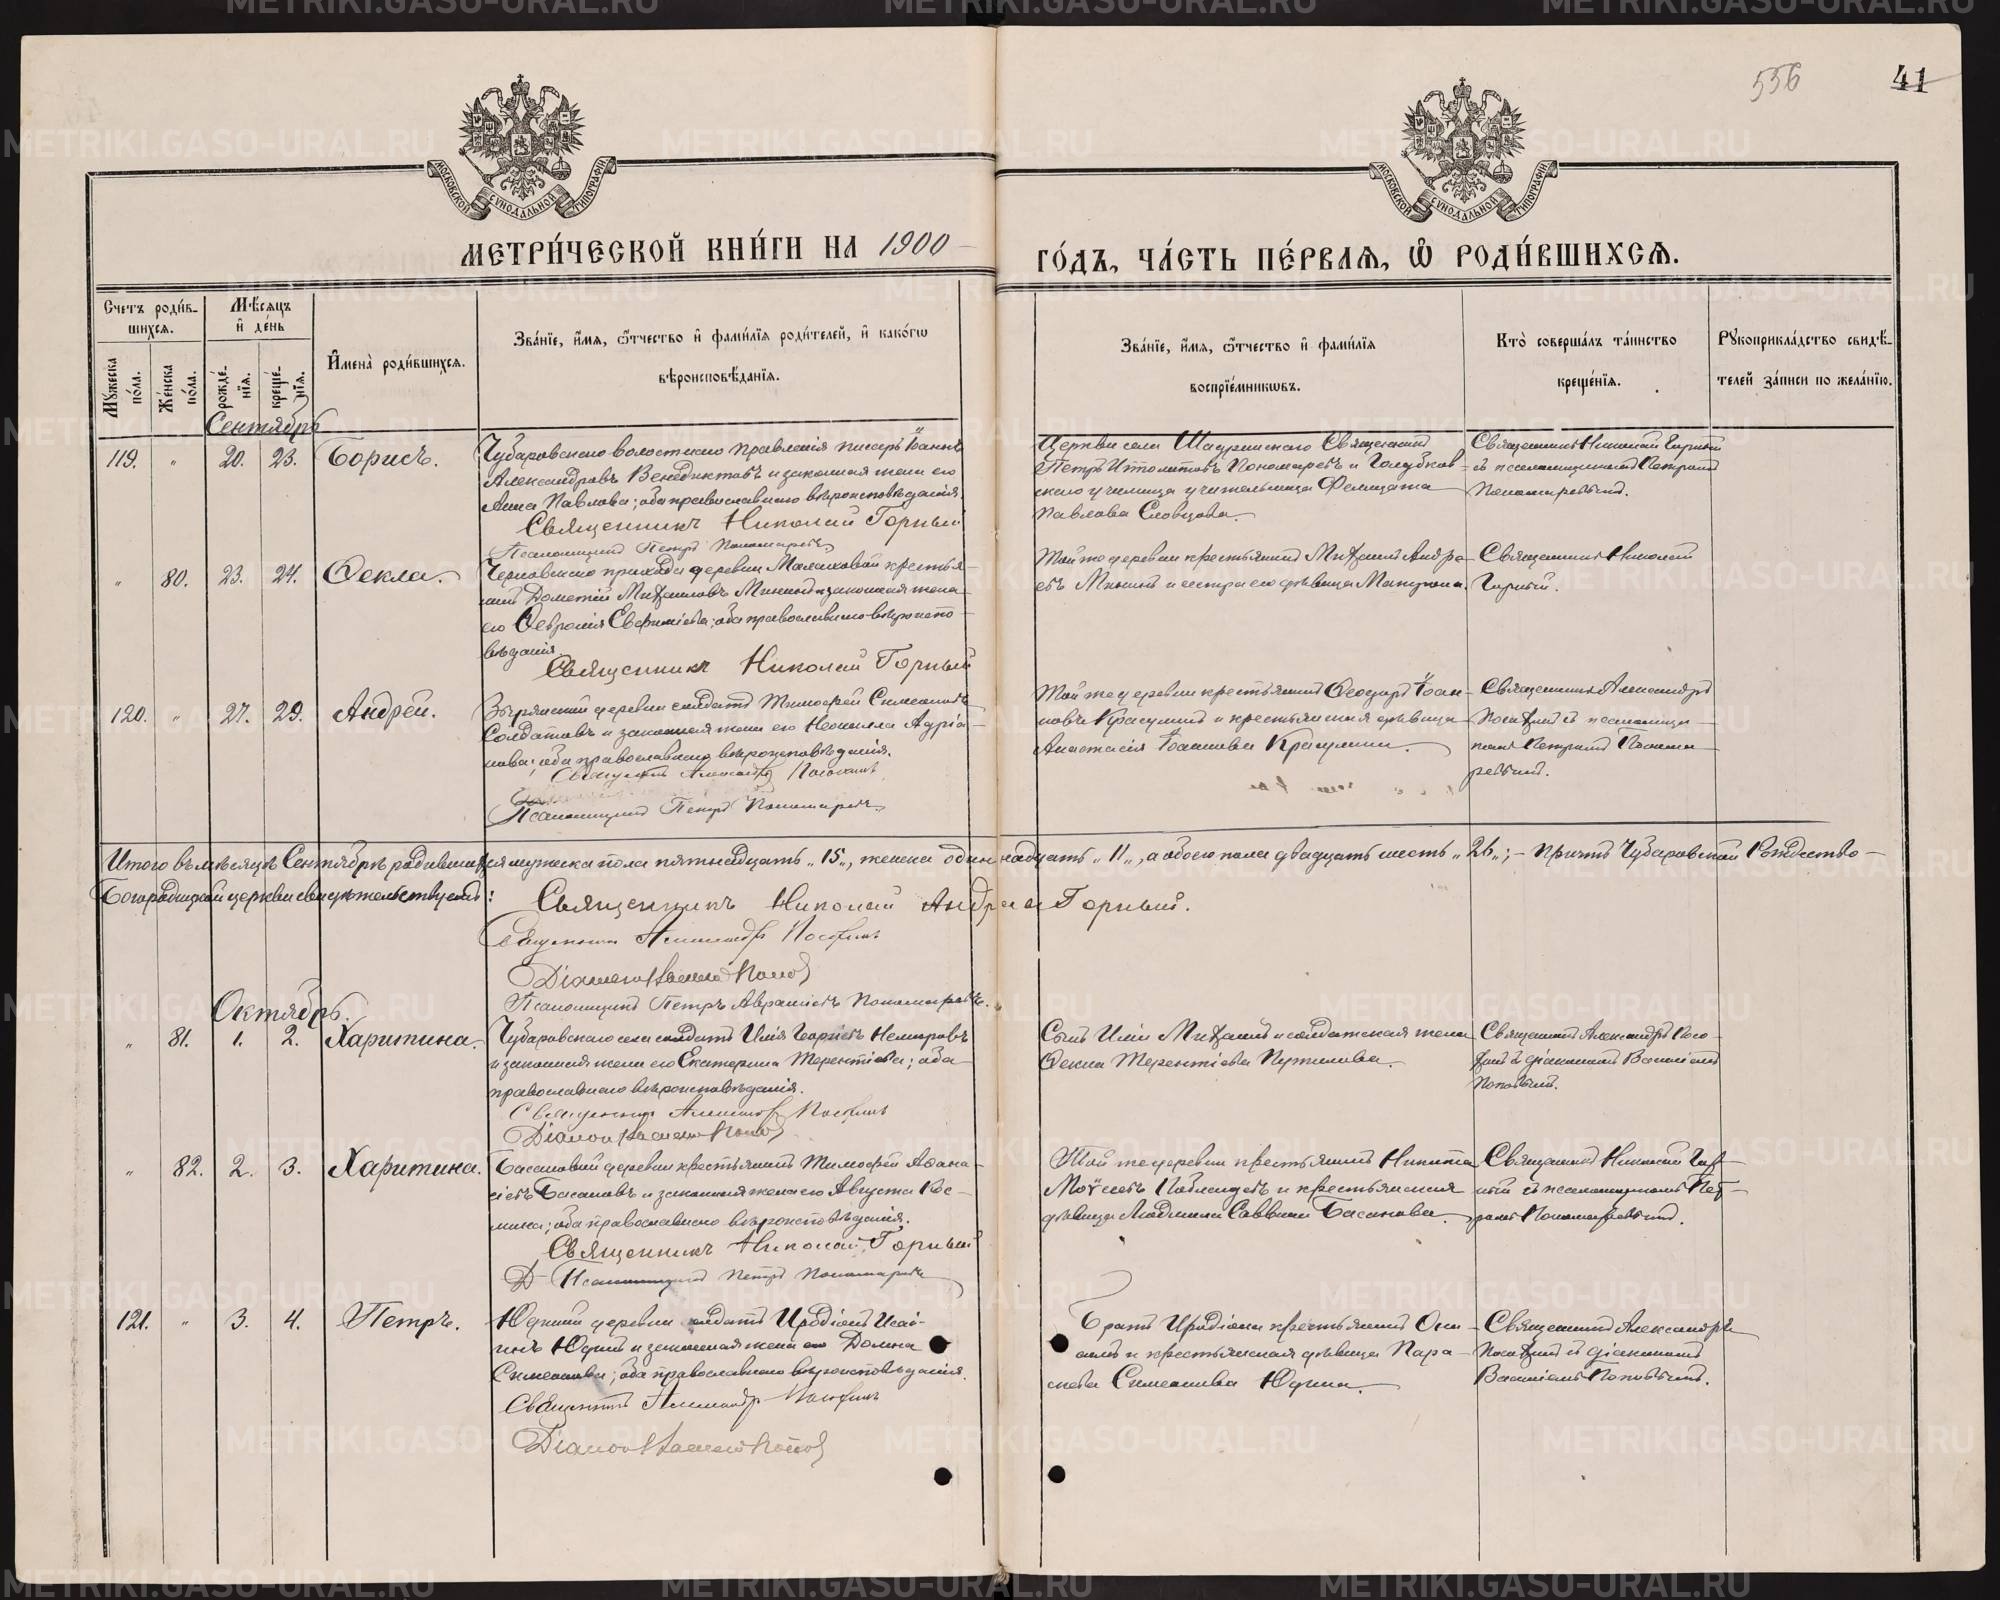 556
41
МОСКОВСКОЙ СѴНОДАЛЬНОЙ ТИПОГРАФІИ
МОСКОВСКОЙ СѴНОДАЛЬНОЙ ТИПОГРАФІИ
МЕТРИ́ЧЕСКОЙ КНИ́ГИ НА 1900
ГО́ДЪ, ЧА́СТЬ ПЕ́РВАЯ, Ѽ РОДИ́ВШИХСЯ.
Счетъ роди́в-
шихся.
Мѣсяцъ
и҆ де́нь
Му́жеска
по́ла.
Же́нска
по́ла.
рожде́-
нїя.
креще́-
нїя.
И҆мена̀ роди́вшихся.
Зва́нїе, и҆́мя, ѻ҆́тчество и҆ фами́лїя роди́телей, и҆ како́гѡ
вѣроисповѣ́данїя.
Зва́нїе, и҆́мя, ѻ҆́тчество и҆ фами́лїя
воспрїе́мникѡвъ.
Кто̀ соверша́лъ та́инство
креще́нїя.
Рꙋкоприкла́дство свидѣ́-
телей за́писи по жела́нїю.
Сентябрь
119. " 20. 23. Борисъ.
Чубаровскаго волостнаго правленія писарь Іоаннъ
Александровъ Венедиктовъ и законная жена его
Анна Павлова; оба православнаго вѣроисповѣданія.
Священникъ Николай Горный
Псаломщикъ Петръ Пономаревъ
Церкви села Шадринскаго Священникъ
Петръ Ипполитовъ Пономаревъ и Голубков-
скаго училища учительница Фелицата
Павлова Словцова.
Священникъ Николай Горный
съ псаломщикомъ Петромъ
Пономаревымъ.
" 80. 23. 24. Ѳекла.
Черновскаго прихода деревни Малаховой крестья-
нинъ Дометій Михаиловъ Мининъ и законная жена
его Ѳевронія Евфиміева; оба православнаго вѣроиспо-
вѣданія.
Священникъ Николай Горный
Той же деревни крестьянинъ Михаилъ Андре-
евъ Мининъ и сестра его дѣвица Матрона.
Священникъ Николай
Горный.
120. " 27. 29. Андрей.
деревни солдатъ Тимофей Симеоновъ
Солдатовъ и законная жена его Неонилла Адріа-
нова; оба православнаго вѣроисповѣданія.
Священникъ Александръ
Псаломщикъ Петръ Пономаревъ
Той же деревни крестьянинъ Ѳеодоръ Іоан-
новъ и крестьянская дѣвица
Анастасія Іоаннова
Священникъ Александръ
съ псаломщи-
комъ Петромъ Понома-
ревымъ.
Итого въ мѣсяцѣ Сентябрѣ родившихся мужеска пола пятнадцать „15„, женска одиннадцать „11„, а обоего пола двадцать шесть „26„; – Причтъ Чубаровской Рождество-
Богородицкой церкви свидѣтельствуетъ:
Священникъ Николай Андреевъ Горный.
Священникъ Александръ
Діаконъ Василій Поповъ
Псаломщикъ Петръ Авраміевъ Пономаревъ.
Октябрь.
" 81. 1. 2. Харитина.
Чубаровскаго села солдатъ Илія Георгіевъ Немировъ
и законная жена его Екатерина Терентіева; оба
православнаго вѣроисповѣданія.
Священникъ Александръ
Діаконъ Василій Поповъ
Сынъ Иліи Михаилъ и солдатская жена
Ѳекла Терентіева Путилова.
Священникъ Александръ
съ діакономъ Василіемъ
Поповымъ.
" 82. 2. 3. Харитина.
Басановой деревни крестьянинъ Тимофей Аѳана-
сіевъ Басановъ и законная жена его Августа Кос-
мина; оба православнаго вѣроисповѣданія.
Священникъ Николай Горный
Псаломщикъ Петръ Пономаревъ
Той же деревни крестьянинъ Никита
Моѵсеевъ и крестьянская
дѣвица Людмила Саввина Басанова.
Священникъ Николай Гор-
ный съ псаломщикомъ Пет-
ромъ Пономаревымъ.
121. " 3. 4. Петръ.
Юдиной деревни солдатъ Иродіонъ Исаі-
инъ Юдинъ и законная жена его Домна
Симеонова; оба православнаго вѣроисповѣданія.
Священникъ Александръ
Діаконъ Василій Поповъ
Братъ Иродіона крестьянинъ
и крестьянская дѣвица Пара-
скева Симеонова Юдина.
Священникъ Александръ
съ діакономъ
Василіемъ Поповымъ.
METRIKI.GASO-URAL.RU